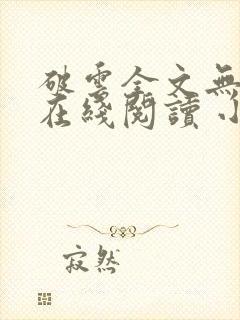 破雲全文無
在綫閱讀 小
寂然